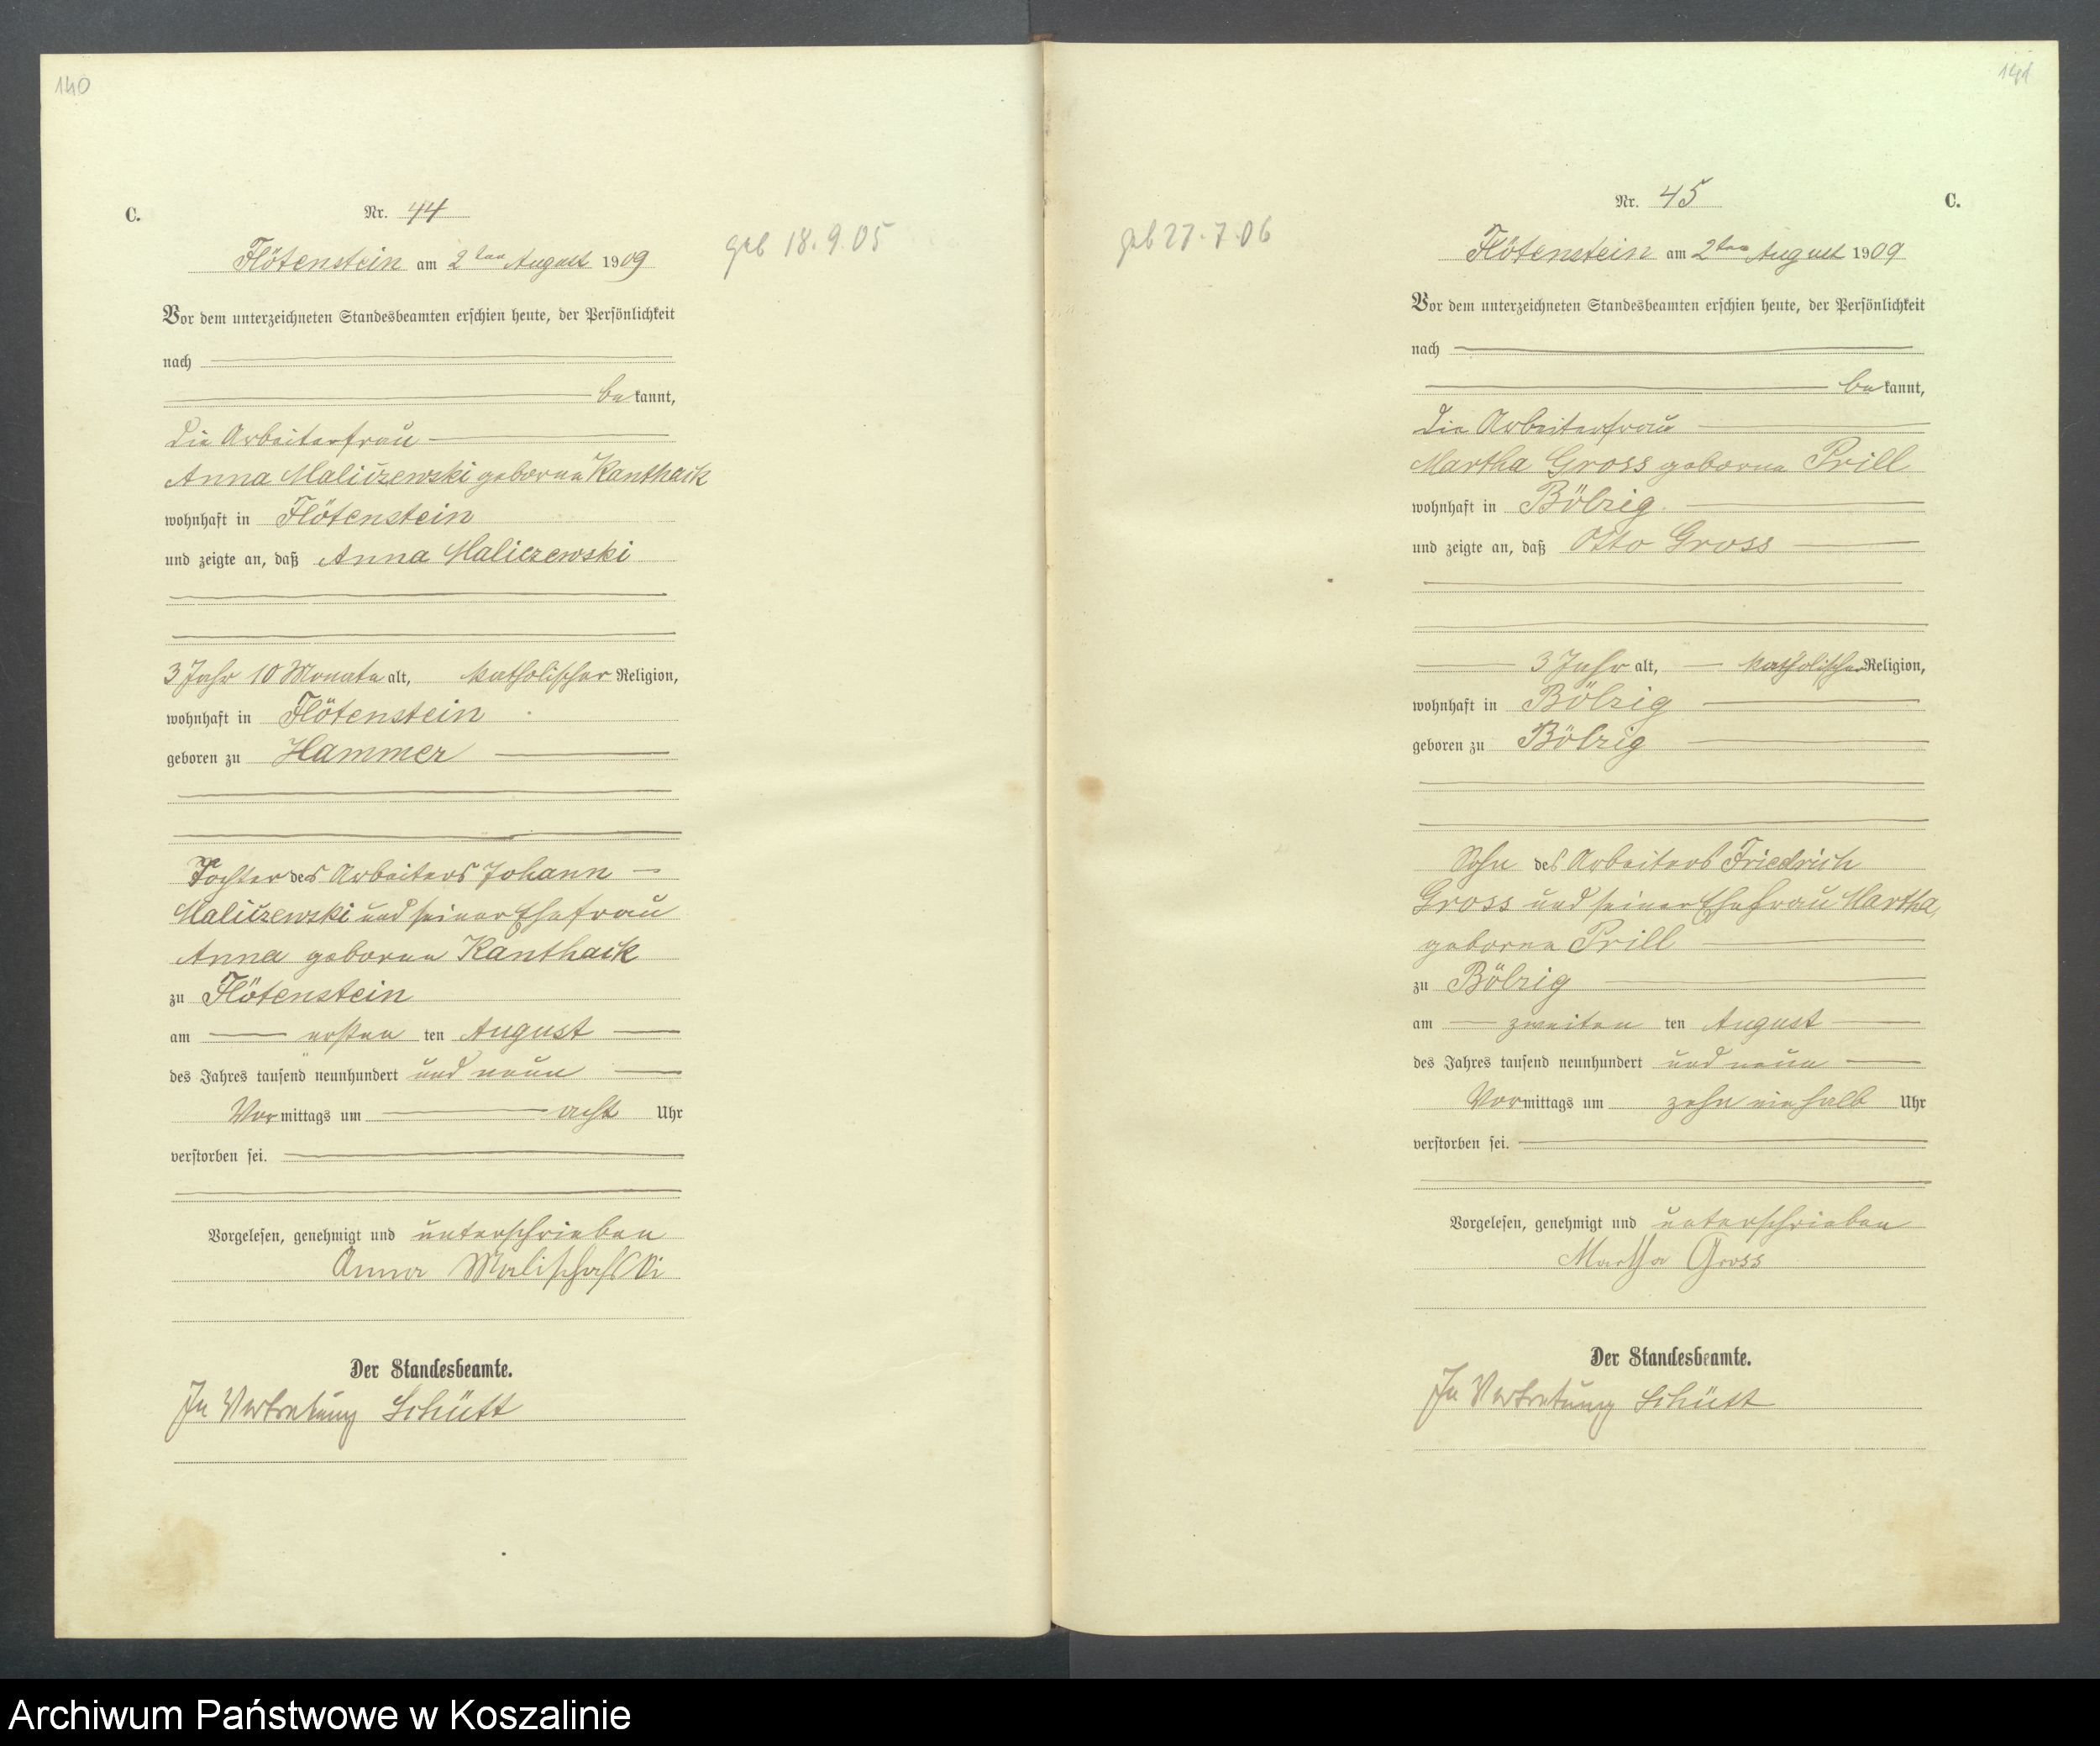 140
C.
Nr. 44
Flötenstein am 2ten August 1909
geb 18.9.05
Vor dem unterzeichneten Standesbeamten erschien heute, der Persönlichkeit
nach
bekannt,
die Arbeiterfrau
Anna Maliczewski geborne Kanthack
wohnhaft in Flötenstein
und zeigte an, daß Anna Maliczewski
3 Jahr 10 Monate alt, katholischer Religion,
wohnhaft in Flötenstein
geboren zu Hammer
Tochter des Arbeiters Johann
Maliczewski und seiner Ehefrau
Anna geborne Kanthack
zu Flötenstein
am ersten ten August
des Jahres tausend neunhundert und neun
Vormittags um acht Uhr
verstorben sei.
Vorgelesen, genehmigt und unterschrieben
Anna
Der Standesbeamte.
In Vertretung Schütt
141
Nr. 45
C.
geb 27.7.06
Flötenstein am 2ten August 1909
Vor dem unterzeichneten Standesbeamten erschien heute, der Persönlichkeit
nach
bekannt,
die Arbeiterfrau
Martha Gross geborne Prill
wohnhaft in Bölzig
und zeigte an, daß Otto Gross
3 Jahr alt, katholischer Religion,
wohnhaft in Bölzig
geboren zu Bölzig
Sohn des Arbeiters Friedrich
Gross und seiner Ehefrau Martha,
geborne Prill
zu Bölzig
am zweiten ten August
des Jahres tausend neunhundert und neun
Vormittags um zehn einhalb Uhr
verstorben sei.
Vorgelesen, genehmigt und unterschrieben
Martha Gross
Der Standesbeamte.
In Vertretung Schütt
Archiwum Państwowe w Koszalinie